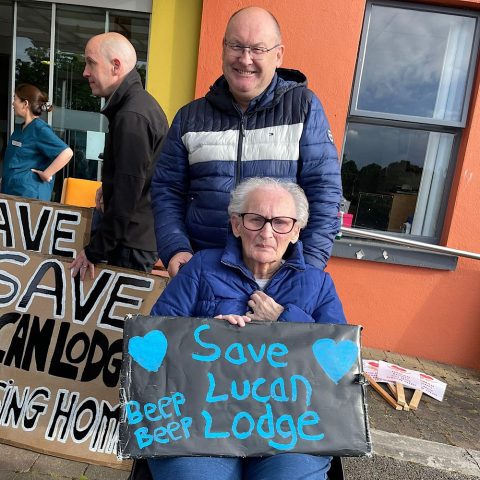 AVE
SAVE
CAN LODG
ING HOM
Save
Lucan
Beep
Beep
Lodge